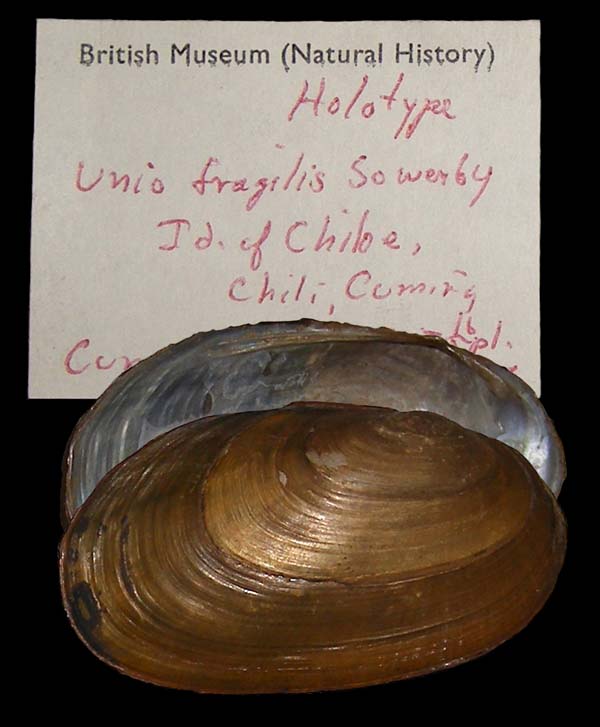 British Museum (Natural History)
Holotype
Unio fragilis Sowerby
Id. of Chiloe,
Chili, Cuming